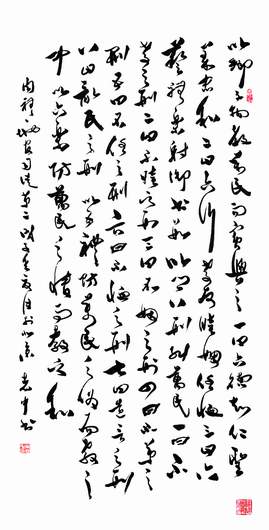 以鄉三物教萬民而賓興之一曰六德知仁聖
義忠和二曰六行孝友睦姻任恤三曰六
藝禮樂射御書數以鄉八刑糾萬民一曰不
孝之刑二曰不睦之刑三曰不姻之刑四曰不弟之
刑五曰不任之刑六曰不恤之刑七曰造言之刑
八曰亂民之刑以五禮防萬民之偽而教之
中以六樂防萬民之情而教之和
周禮地官司徒第二